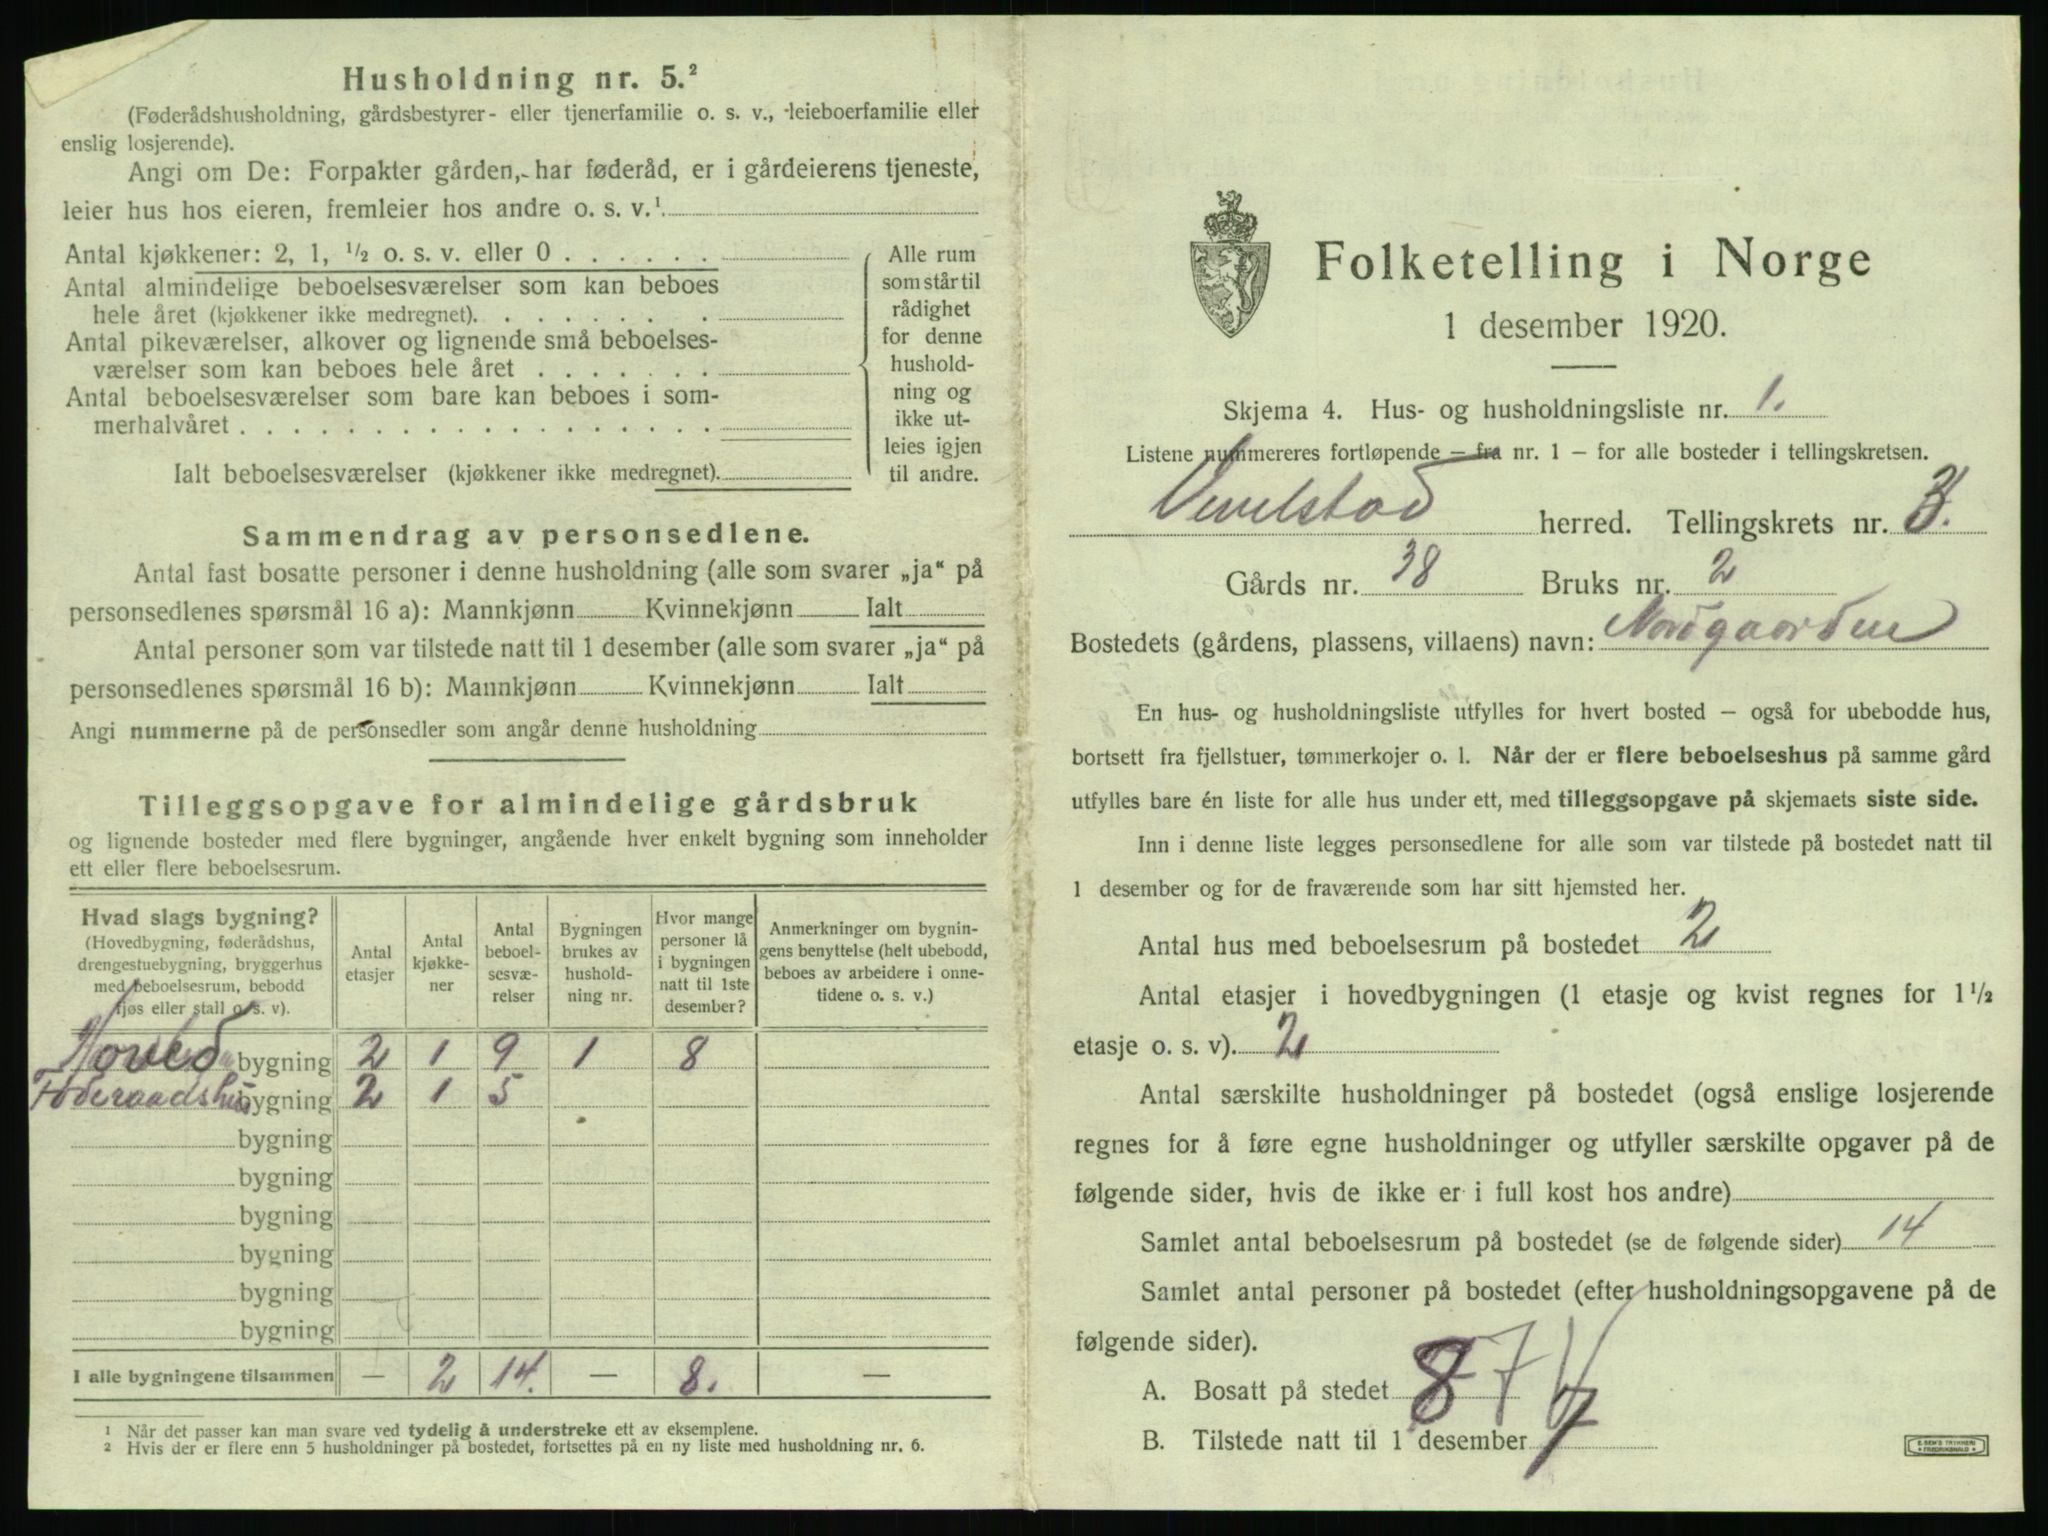 Husholdning nr. 5.²
(Føderådshusholdning, gårdsbestyrer- eller tjenerfamilie o. s. v., leieboerfamilie eller
enslig losjerende).
Angi om De: Forpakter gården, har føderåd, er i gårdeierens tjeneste,
leier hus hos eieren, fremleier hos andre o. s. v.¹
Antal kjøkkener: 2, 1, ½ o. s. v. eller 0
Antal almindelige beboelsesværelser som kan beboes
hele året (kjøkkener ikke medregnet).
Antal pikeværelser, alkover og lignende små beboelses-
værelser som kan beboes hele året
Antal beboelsesværelser som bare kan beboes i som-
merhalvåret
Ialt beboelsesværelser (kjøkkener ikke medregnet).
Alle rum
som står til
rådighet
for denne
hushold-
ning og
ikke ut-
leies igjen
til andre.
Sammendrag av personsedlene.
Antal fast bosatte personer i denne husholdning (alle som svarer „ja" på
personsedlenes spørsmål 16 a): Mannkjønn Kvinnekjønn Ialt
Antal personer som var tilstede natt til 1 desember (alle som svarer „ja" på
personsedlenes spørsmål 16 b): Mannkjønn Kvinnekjønn Ialt
Angi nummerne på de personsedler som angår denne husholdning
Tilleggsopgave for almindelige gårdsbruk
og lignende bosteder med flere bygninger, angående hver enkelt bygning som inneholder
ett eller flere beboelsesrum.
Hvad slags bygning?
(Hovedbygning, føderådshus,
drengestuebygning, bryggerhus
med beboelsesrum, bebodd
fjøs eller stall o. s. v).
Antal
etasjer
Antal
kjøkke-
ner
Antal
beboel-
sesvæ-
relser
Bygningen
brukes av
hushold-
ning nr.
Hvor mange
personer lå
i bygningen
natt til 1ste
desember?
Anmerkninger om bygnin-
gens benyttelse (helt ubebodd,
beboes av arbeidere i onne-
tidene o. s. v.)
Hoved bygning 2 1 9 1 8
Føderaadshus bygning 2 1 5
bygning
bygning
bygning
bygning
bygning
bygning
I alle bygningene tilsammen — 2 14. — 8. —
¹ Når det passer kan man svare ved tydelig å understreke ett av eksemplene.
² Hvis der er flere enn 5 husholdninger på bostedet, fortsettes på en ny liste med husholdning nr. 6.
Folketelling i Norge
1 desember 1920.
Skjema 4. Hus- og husholdningsliste nr. 1.
Listene nummereres fortløpende – fra nr. 1 – for alle bosteder i tellingskretsen.
Vevelstad herred. Tellingskrets nr. 3.
Gårds nr. 38 Bruks nr. 2
Bostedets (gårdens, plassens, villaens) navn: Nordgaarden
En hus- og husholdningsliste utfylles for hvert bosted – også for ubebodde hus,
bortsett fra fjellstuer, tømmerkojer o. l. Når der er flere beboelseshus på samme gård
utfylles bare én liste for alle hus under ett, med tilleggsopgave på skjemaets siste side.
Inn i denne liste legges personsedlene for alle som var tilstede på bostedet natt til
1 desember og for de fraværende som har sitt hjemsted her.
Antal hus med beboelsesrum på bostedet 2
Antal etasjer i hovedbygningen (1 etasje og kvist regnes for 1½
etasje o. s. v). 2
Antal særskilte husholdninger på bostedet (også enslige losjerende
regnes for å føre egne husholdninger og utfyller særskilte opgaver på de
følgende sider, hvis de ikke er i full kost hos andre)
Samlet antal beboelsesrum på bostedet (se de følgende sider) 14
Samlet antal personer på bostedet (efter husholdningsopgavene på de
følgende sider).
A. Bosatt på stedet 8 7
B. Tilstede natt til 1 desember 7
E. SEM'S TRYKKERI
FREDRIKSHALD